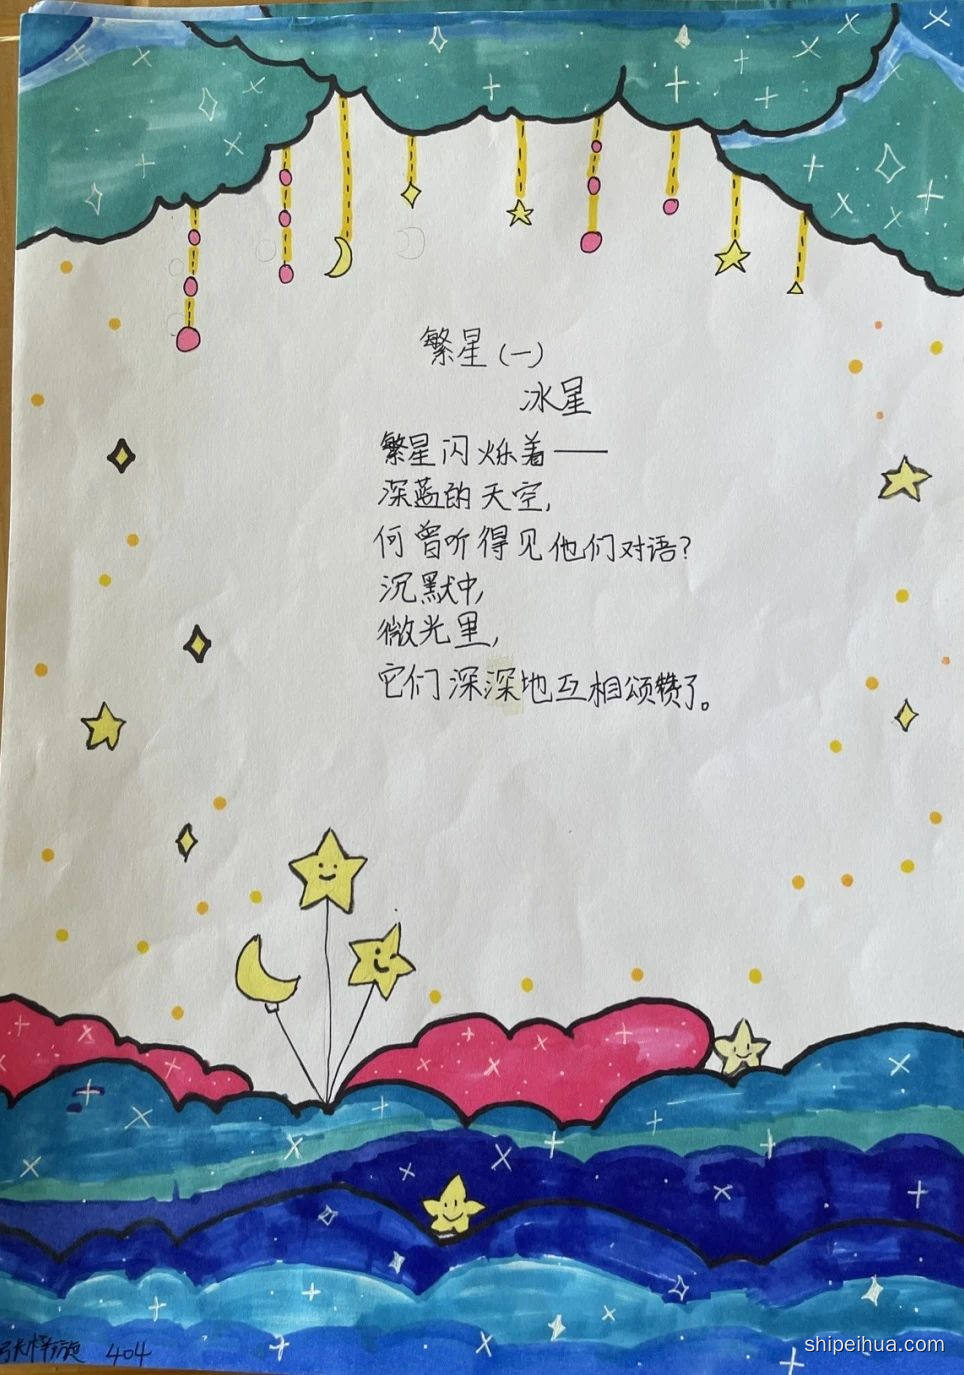 繁星(一)
冰星
繁星闪烁着——
深蓝的天空,
何曾听得见他们对语?
沉默中,
微光里,
它们深深地互相颂赞了。
404
shipeihua.com